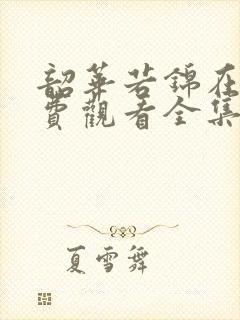 韶華若錦在
費觀看全集
夏雪舞